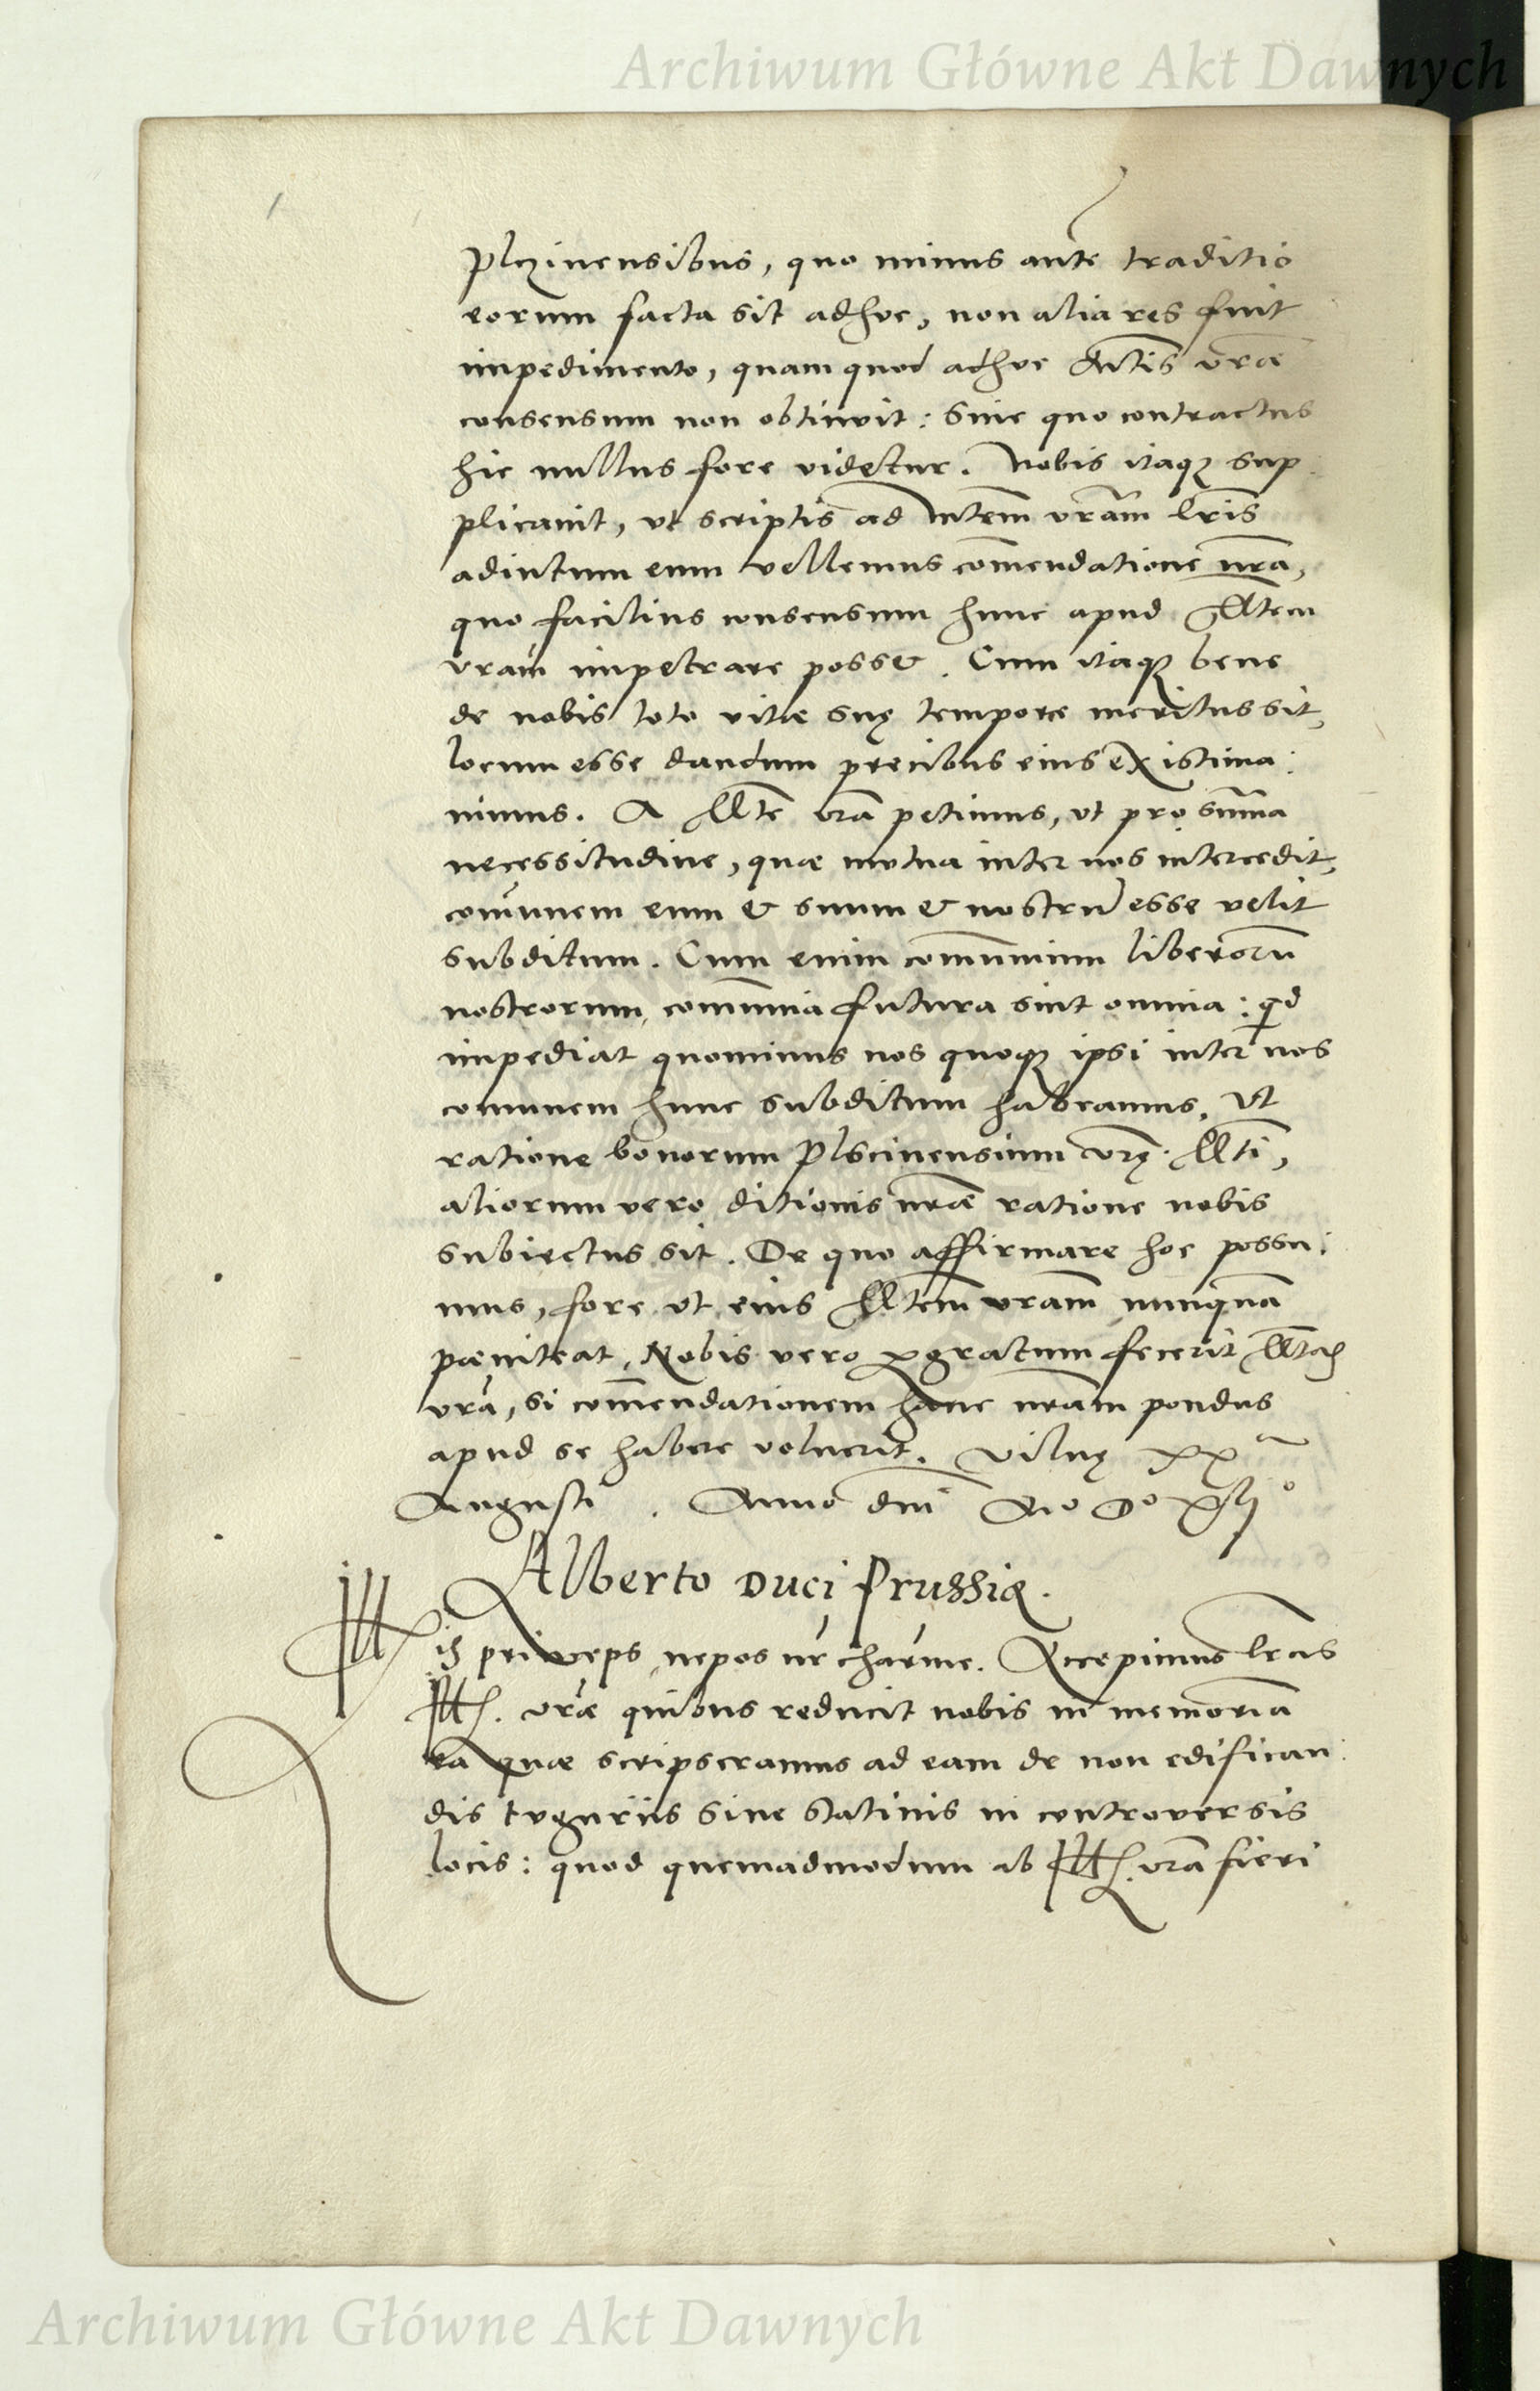 Archiwum Główne Akt Dawnych
Plczinensibus, quo minus ante traditio
eorum facta sit adhuc, non alia res fuit
impedimento, quam quod adhuc Mtis vrae
consensum non obtinuit: Sine quo contractus
hic nullus fore videtur. Nobis itaque sup
plicauit, vt scriptis ad Mtem vram lris
adiutum eum vellemus comendatione nra,
quo facilius consensum hunc apud Mtem
vram impetrare posset. Cum itaque bene
de nobis toto vitae suę tempore meritus sit,
locum esse dandum precibus eius existima:
uimus. A Mte vra petimus, vt pro suma
necessitudine, quae mutua inter nos intercedit,
comunem eum & suum & nostru esse velit
subditum. Cum enim comunium liberoru
nostrorum, comunia futura sint omnia: qd
impediat quominus nos quoque ipsi inter nos
comunem hunc subditum habeamus. Vt
ratione bonorum Plscinensium vrę Mti,
aliorum vero ditionis nrae ratione nobis
subiectus sit. De quo affirmare hoc possu:
mus, fore vt eius Mtem vram nunqua
paeniteat. Nobis vero pgratum fecerit Mtas
vra, si comendationem hanc nram pondus
apud se habere voluerit. Vilnę XX
Augusti. Anno dni Mo Do XLIIo
Alberto Duci Prussiae.
Illis princeps, nepos nr charme. Accepimus lras
Ill. vrae quibus reducit nobis in memoria
ea quae scripseramus ad eam de non edifican:
dis tuguriis siue statiuis in controuersis
locis: quod quemadmodum ab Ill. vra fieri
Archiwum Główne Akt Dawnych